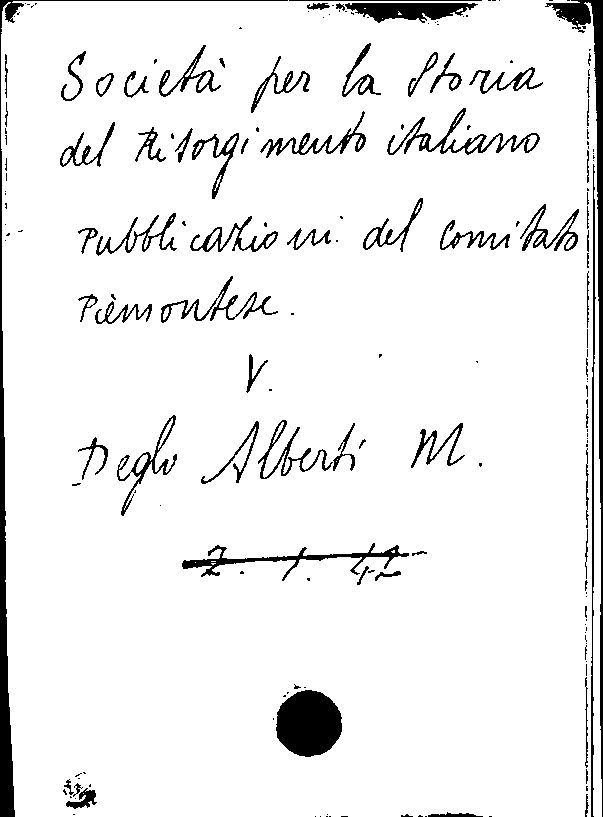 Società per la Storia
del Risorgimento italiano
Pubblicazioni del Comitato
Piemontese.
V.
Degli Alberti M.
2. 1. 42